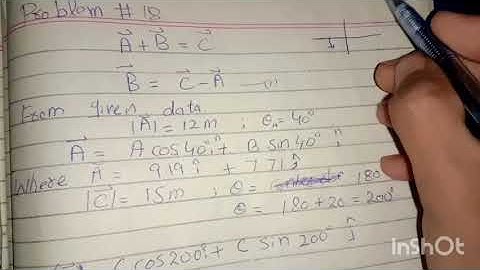 Problem # 18
A⃗ + B⃗ = C⃗
B⃗ = C⃗ - A⃗ — (i)
From given data
|A⃗| = 12m ; θₐ = 40°
A⃗ = A cos40° î + B sin40° ĵ
Where A⃗ = 9.19 î + 7.71 ĵ
|C⃗| = 15m ; θ = 180
θ = 180 + 20 = 200°
C cos200° î + C sin200° ĵ
InShOt